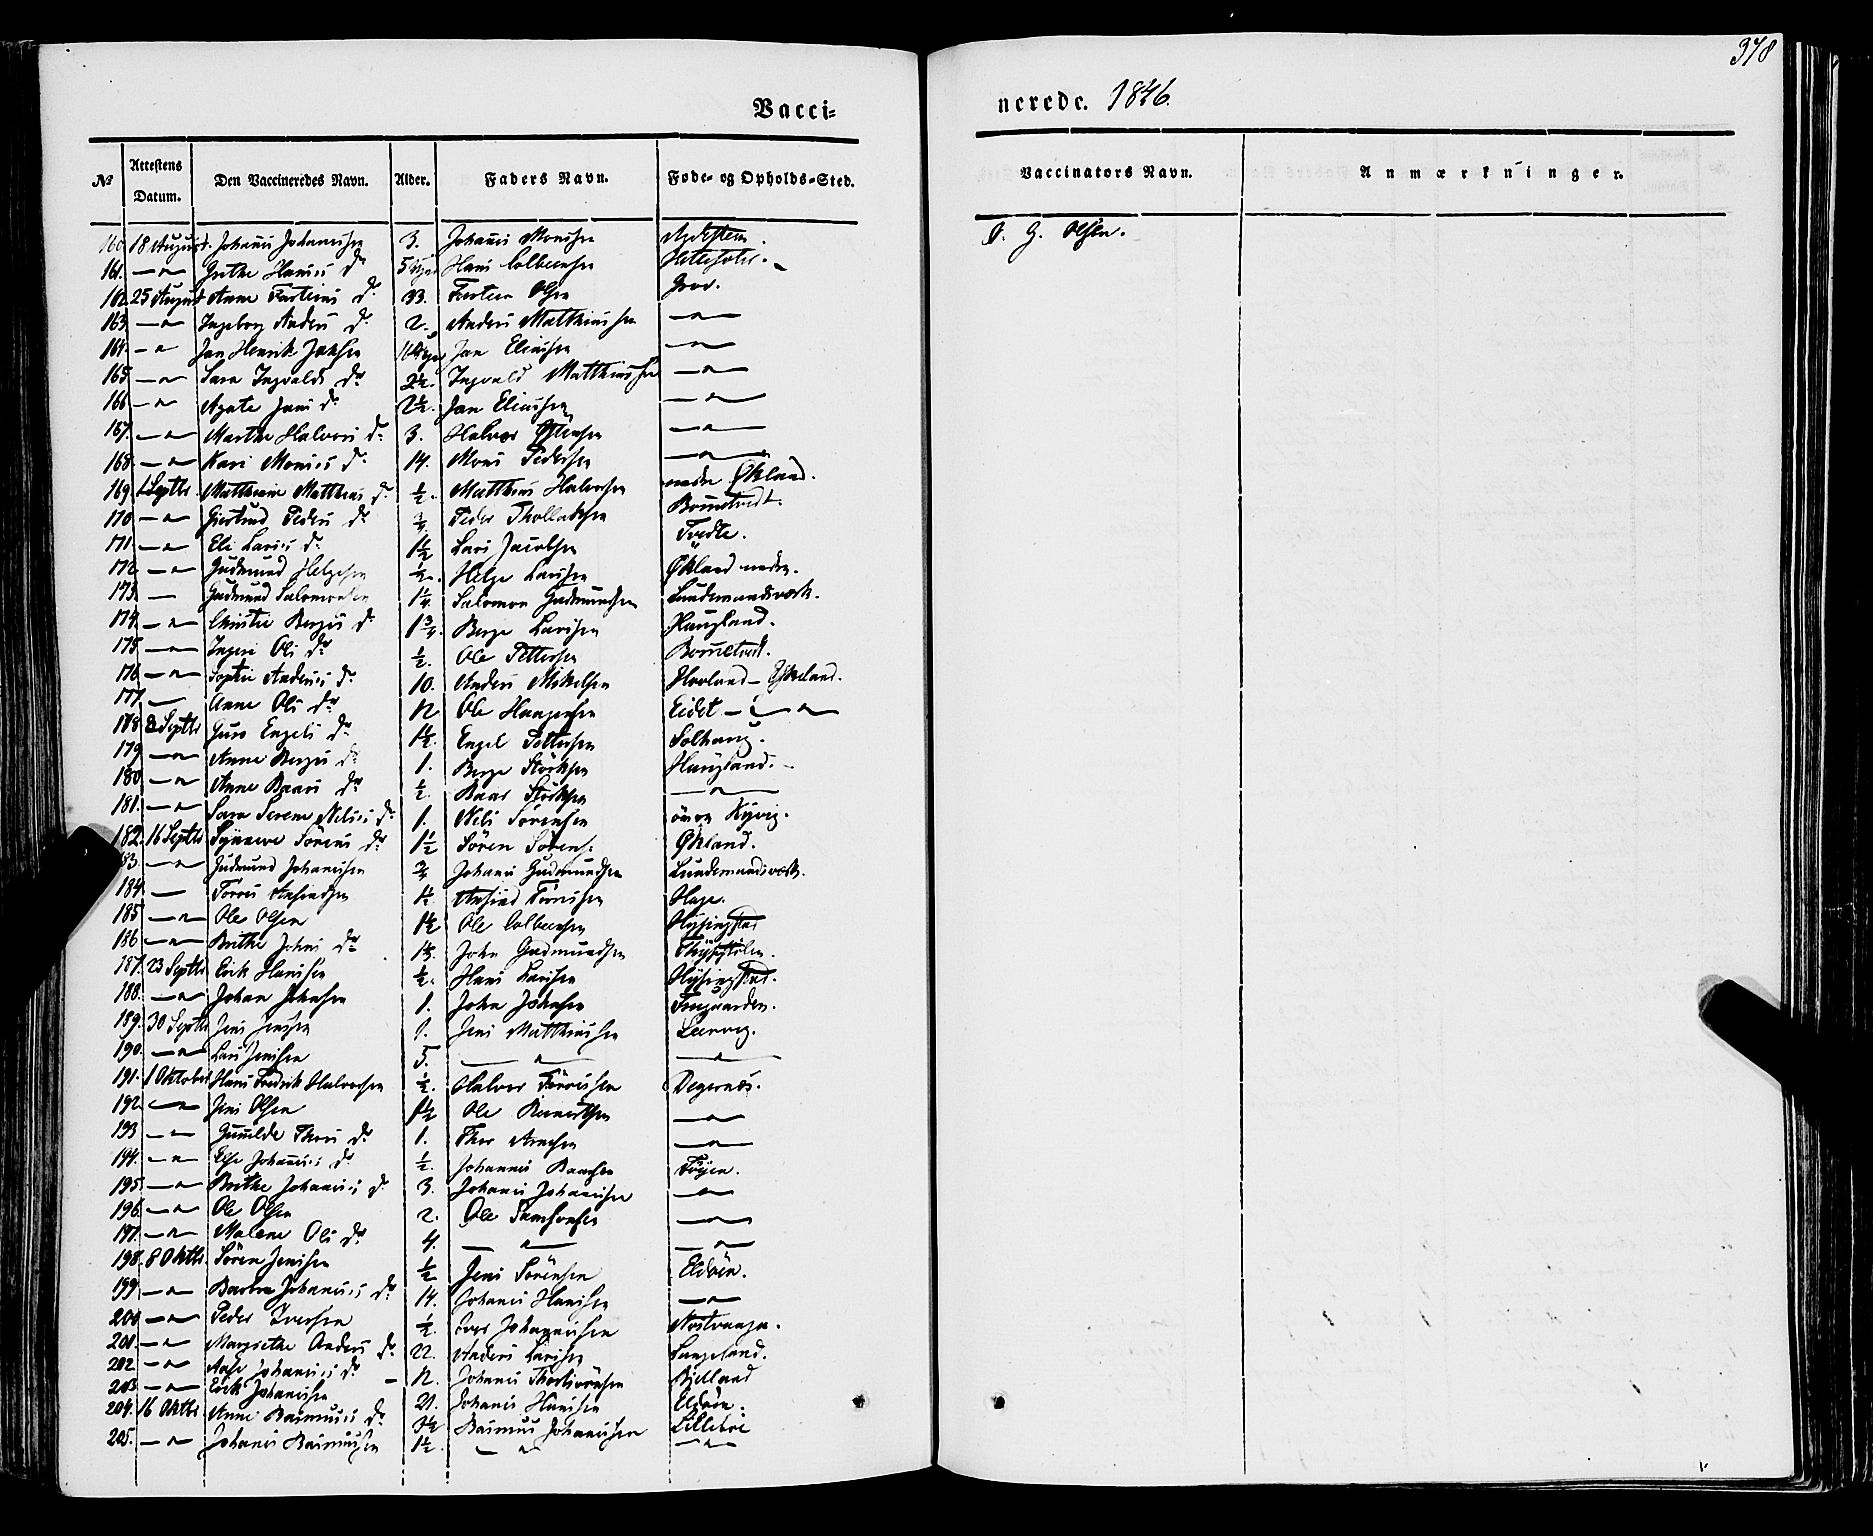 378
Vacci-
nerede. 1846.
No
Attestens Datum.
Den Vaccineredes Navn.
Alder.
Faders Navn.
Føde- og Opholds-Sted.
Vaccinators Navn.
Anmærkninger.
160. 18 August. Johannes Johannesen 3. Johannes Monsen
O. G. Olsen.
161. —"— Grethe Hanses Dr 5 Hans Colbeensen
162. 25 August Anne Fasteins Dr 33. Fastein Olsen
163. —"— Ingeborg Anders Dr 2. Anders Matthiassen —"—
164. —"— Jan Henrik Jansen Jan Eliassen —"—
165. —"— Sara Ingvalds Dr 2½. Ingvald Matthiassen —"—
166. —"— Agate Jans Dr 2½. Jan Eliassen —"—
167. —"— Marthe Halvors Dr 3. Halvor —"—
168. —"— Kari Monses Dr 14. Mons Pedersen —"—
169. 1 Septbr. Matthias Dr ½. Matthias Halvorsen nedre Økland.
170. —"— Giertrud Peders Dr ¾. Peder Thollaksen Bommetvedt.
171. —"— Eli Larses Dr 1½ Lars Jacobsen Tvedte.
172. —"— Gudmund Helgesen ½. Helge Larsen Økland nedre.
173. — Gudmund Salomonsen 1¼. Salomon Gudmundsen Lundemandsværk.
174. —"— Christie Berges Dr 1¾. Berge Larsen Haugland.
175. —"— Ingeri Ols Dr ½. Ole Pettersen
176. —"— Sophie Anderses Dr 10. Anders Mikelsen Hovland –
177. — Anne Ols Dr 12 Ole Haagensen Eidet – —"—
178. 2 Septbr Guro Engels Dr 1½. Engel Pettersen Solhaug.
179. —"— Anne Berges Dr 1. Berge Haugland.
180. —"— Anne Baars Dr ½. Baar —"—
181. —"— Sara Serene Nelses Dr 1. Nels Sørensen øvre Kyvig.
182. 16 Septbr Synneve Sørens Dr 1½ Søren Sørens: Økland.
183. —"— Gudmund Johannesen ¾ Johannes Gudmundsen Lundemandsværk.
184. — Tørres Ansindsen 1½. Ansind Tørresen Hage.
185. —"— Ole Olsen 1½ Ole Colbeensen Hysingstad
186. —"— Brithe Johns Dr John Gudmundsen
187. 23 Septbr Erik Hansen ½. Hans Larsen Hysingstad.
188. —"— Johan Johnsen 1. John Johnsen
189. 30 Septbr Jens Jensen 1. Jens Matthiassen Leervig.
190. —"— Lars Jensen 5. —"— —"—
191. 1 Oktober Hans Fredrik Halvorsen ½. Halvor Tørresen Degernæs.
192. —"— Jens Olsen 1½ Ole —"—
193 —"— Gunilde Thors Dr 1. Thor —"—
194. —"— Else Johannes Dr ½. Johannes Baardsen Føyen.
195. —"— Brithe Johannes Dr 3. Johannes Johannesen —"—
196. —"— Ole Olsen 2. Ole Samsonsen —"—
197. —"— Malene Ols Dr 4. —"— —"—
198. 8 Oktbr. Søren Jensen ½ Jens Sørensen Eldøen.
199. —"— Barbra Johannes Dr 14. Johannes Hansen —"—
200 —"— Peder Iversen ½. Iver Johannesen
201. —"— Margrethe Anders Dr 22. Anders Larsen Langeland.
202 —"— Aase Johannes Dr – 12. Johannes Bjelland
203. —"— Erik Johannesen 21. Johannes Hansen Eldøen.
204. 16 Oktbr Anne Rasmuses Dr 3½ Rasmus Johannesen Lillebøe
205. —"— Johannes Rasmussen 1½. —"— —"—